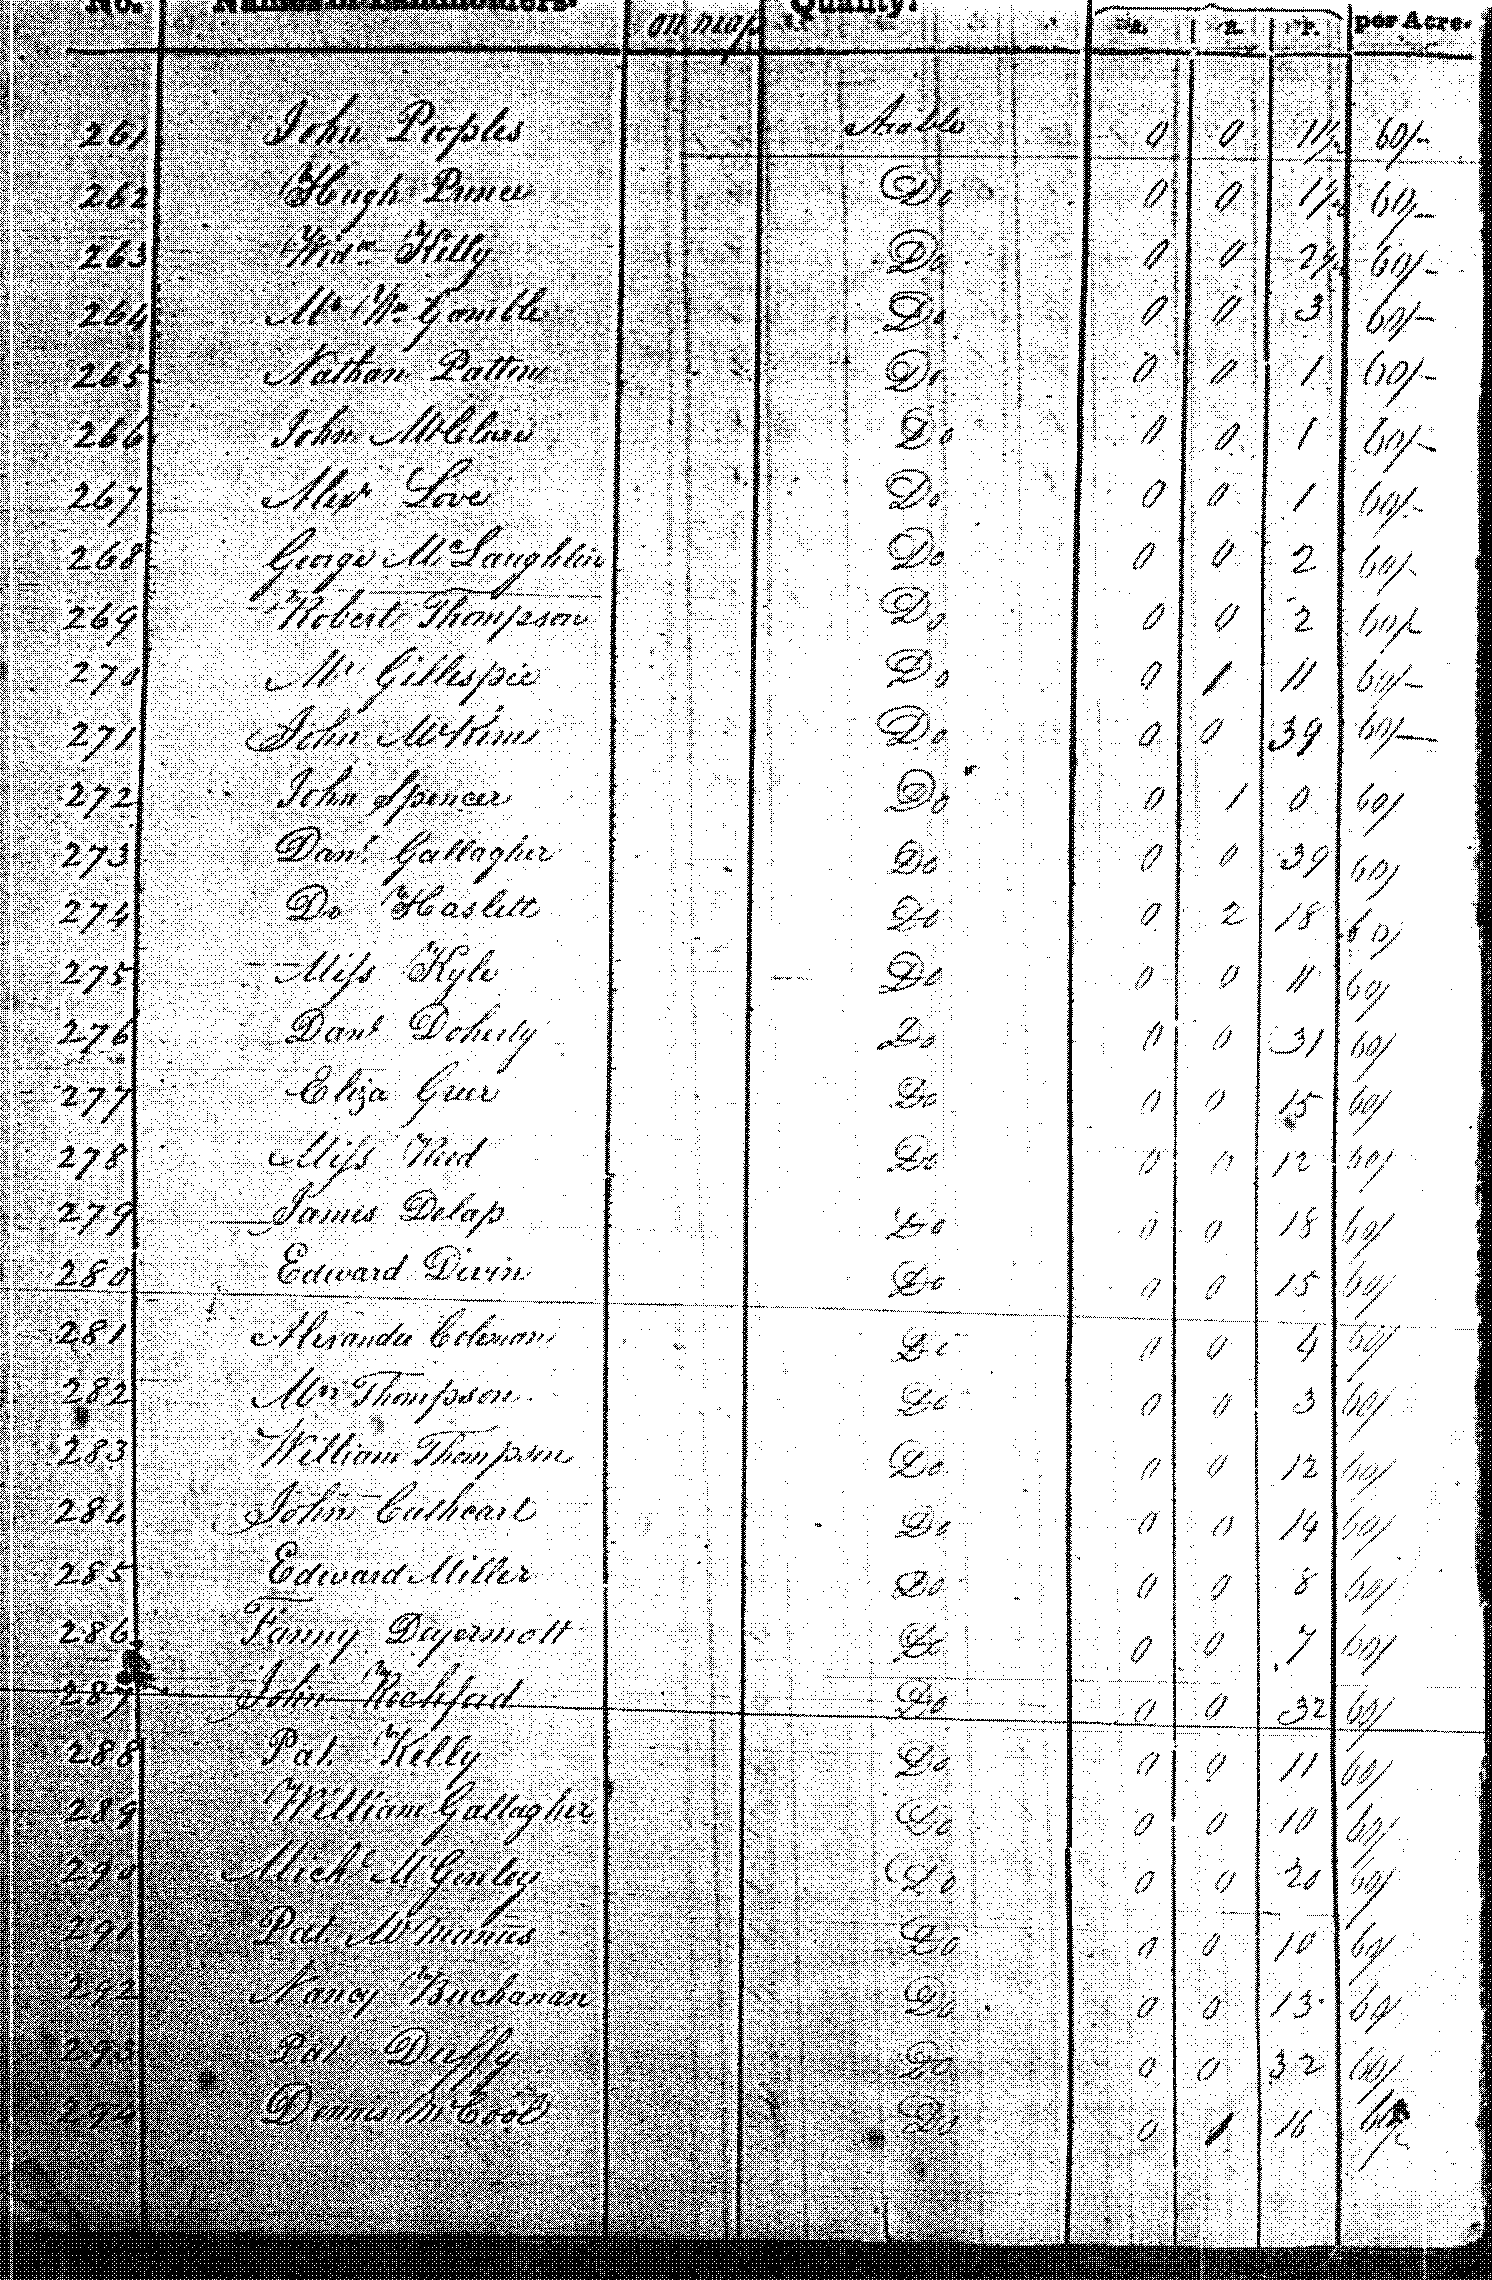 No. Names of Landholders. on map Quality. a. r. p. per Acre.
261 John Peoples Arable 0 0 1½ 60/-
262 Hugh Prince Do 0 0 1½ 60/-
263 Widw Killy Do 0 0 2½ 60/-
264 Mr Wm Gamble Do 0 0 3 60/-
265 Nathan Patton Do 0 0 1 60/-
266 John McClure Do 0 0 1 60/-
267 Alexr Love Do 0 0 1 60/-
268 George McLaughlin Do 0 0 2 60/-
269 Robert Thompson Do 0 0 2 60/-
270 Mr Gillespie Do 0 1 11 60/-
271 John McKims Do 0 0 39 60/-
272 John Spencer Do 0 1 0 60/
273 Danl Gallagher Do 0 0 39 60/
274 Do Haslett Do 0 2 18 60/
275 Miss Kyle Do 0 0 11 60/
276 Danl Doherty Do 0 0 31 60/
277 Eliza Greer Do 0 0 15 60/
278 Miss Do 0 0 12 60/
279 James Delap Do 0 0 18 60/
280 Edward Divin Do 0 0 15 60/
281 Alexander Coleman Do 0 0 4 60/
282 Mrs Thompson Do 0 0 3 60/
283 William Thompson Do 0 0 12 60/
284 John Cuthcart Do 0 0 14 60/
285 Edward Miller Do 0 0 8 60/
286 Fanny Dayermott Do 0 0 7 60/
287 John Rochford Do 0 0 32 60/
288 Pat. Kelly Do 0 0 11 60/
289 William Gallagher Do 0 0 10 60/
290 Michl McGinley Do 0 0 20 60/
291 Pat. McManus Do 0 0 10 60/
292 Nancy Buchanan Do 0 0 13 60/
293 Pat. Duffy Do 0 0 32 60/
294 Dennis McCool Do 0 1 16 60/